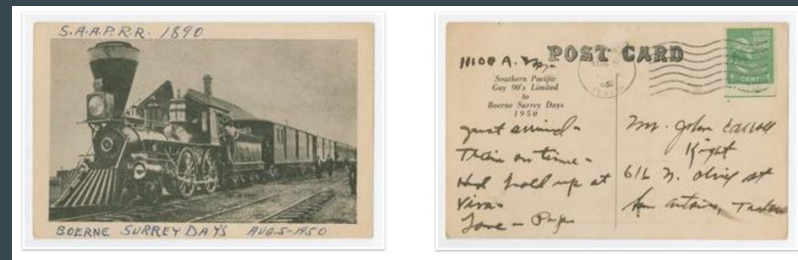 S.A.A.P.R.R. 1890
BOERNE SURREY DAYS AUG.5-1950
POST CARD
11100 A.M.
Southern Pacific
Gay 90's Limited
to
Boerne Surrey Days
1950
1 CENT 1
Just arrived-
Train on time-
Had hold up at
Love - Pop
Mr. John Carroll
616 N. Olive St
San Antonio, Texas